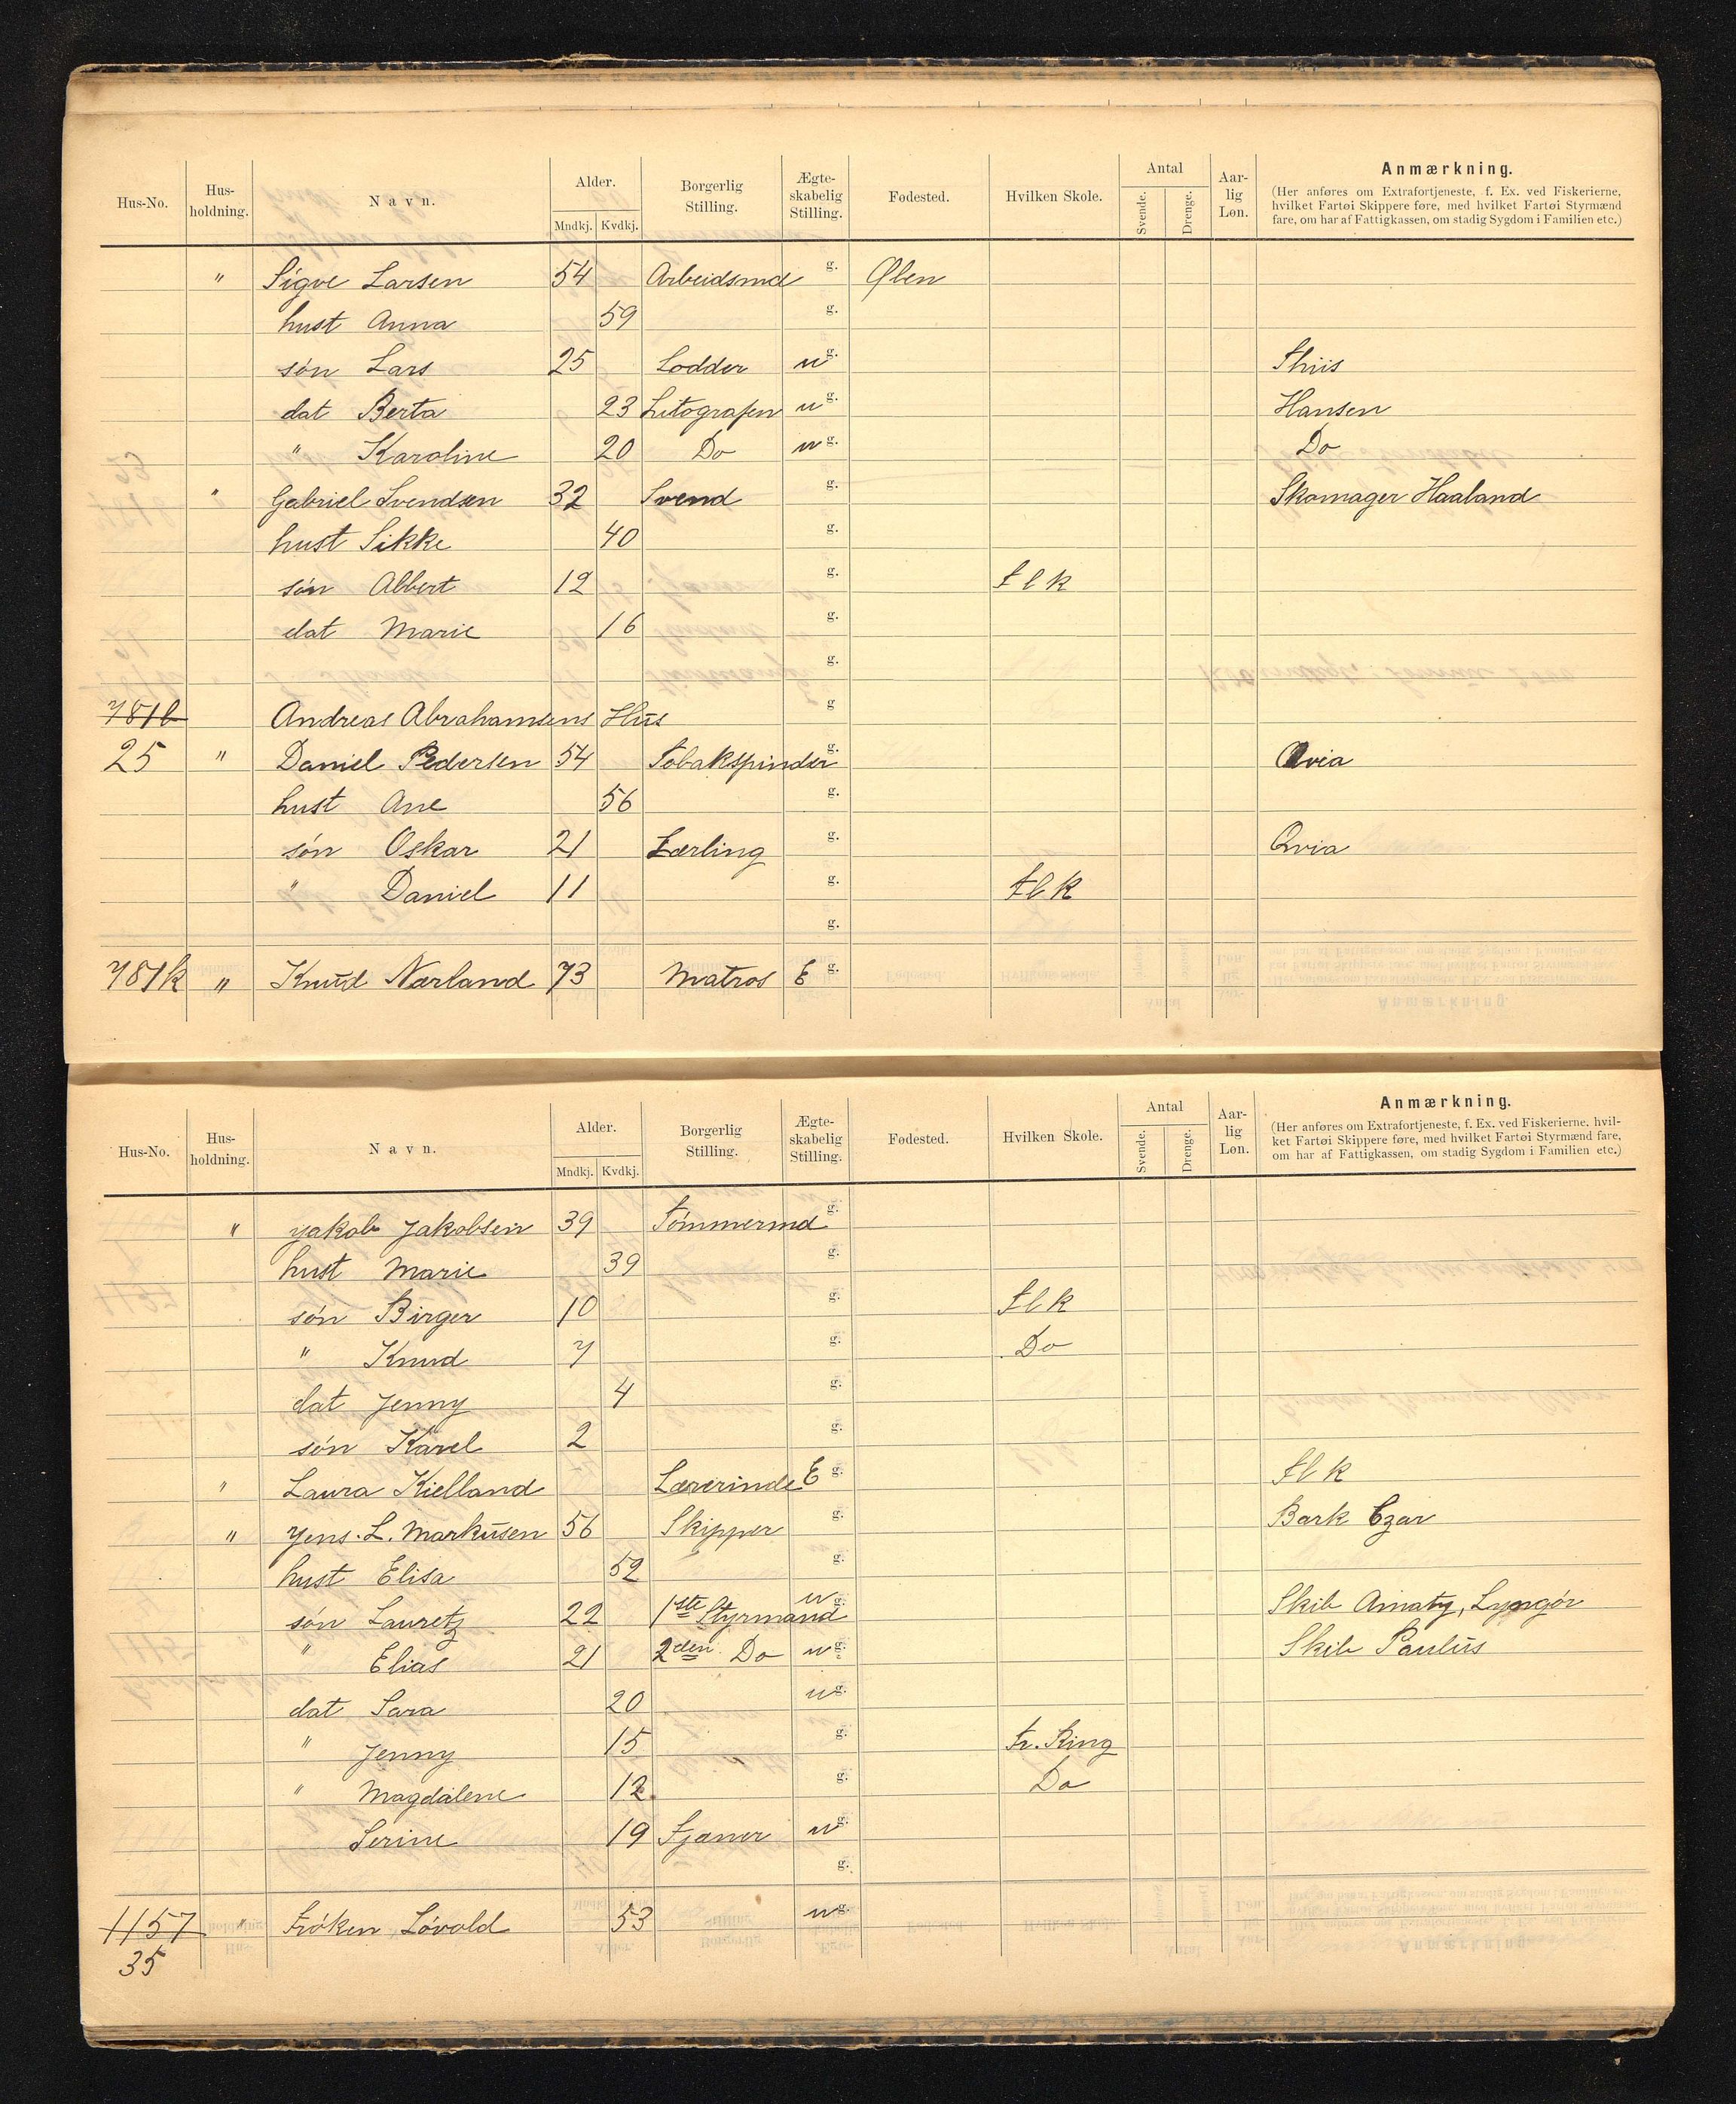 Hus-No. Hus-holdning. Navn. Alder. Mndkj. Kvdkj. Borgerlig Stilling. Ægte-skabelig Stilling. Fødested. Hvilken Skole. Antal Svende. Drenge. Aar-lig Løn. Anmærkning.
(Her anføres om Extrafortjeneste, f. Ex. ved Fiskerierne, hvilket Fartøi Skippere føre, med hvilket Fartøi Styrmænd fare, om har af Fattigkassen, om stadig Sygdom i Familien etc.)
" Sigve Larsen 54 Arbeidsmd g. Ølen
hust Anna 59 g.
søn Lars 25 Lodder u g. Thiis
dat Berta 23 Litografen u g. Hansen
" Karoline 20 Do u g. Do
" Gabriel Svendsen 32 Svend g. Skomager Haaland
hust Sikke 40 g.
søn Albert 12 g. flk
dat Marie 16 g.
g.
781b Andreas Abrahamsens Hus g
25 " Daniel Pedersen 54 Tobakspinder g. Qvia
hust Ane 56 g.
søn Oskar 21 Lærling g. Qvia
" Daniel 11 g. flk
g.
781k " Knud Nærland 73 Matros E g.
Hus-No. Hus-holdning. Navn. Alder. Mndkj. Kvdkj. Borgerlig Stilling. Ægte-skabelig Stilling. Fødested. Hvilken Skole. Antal Svende. Drenge. Aar-lig Løn. Anmærkning.
(Her anføres om Extrafortjeneste, f. Ex. ved Fiskerierne. hvil-ket Fartøi Skippere føre, med hvilket Fartøi Styrmænd fare, om har af Fattigkassen, om stadig Sygdom i Familien etc.)
" Jakob Jakobsen 39 Tømmermd g.
hust Marie 39 g.
søn Birger 10 g. flk
" Knud 7 g. Do
dat Jenny 4 g.
søn Karel 2 g.
" Laura Kielland Lærerinde E g. flk
" Jens. L. Markusen 56 Skipper g. Bark Czar
hust Elisa 52 g.
søn Lauretz 22 1ste Styrmand u g. Skib Amaty, Lyngør
" Elias 21 2den Do u g. Skib Paulus
dat Sara 20 u g.
" Jenny 15 g. Fr. Ring
" Magdalene 12 g. Do
Serine 19 Tjener u g.
g.
1157 " Frøken Løvold 53 u g.
35